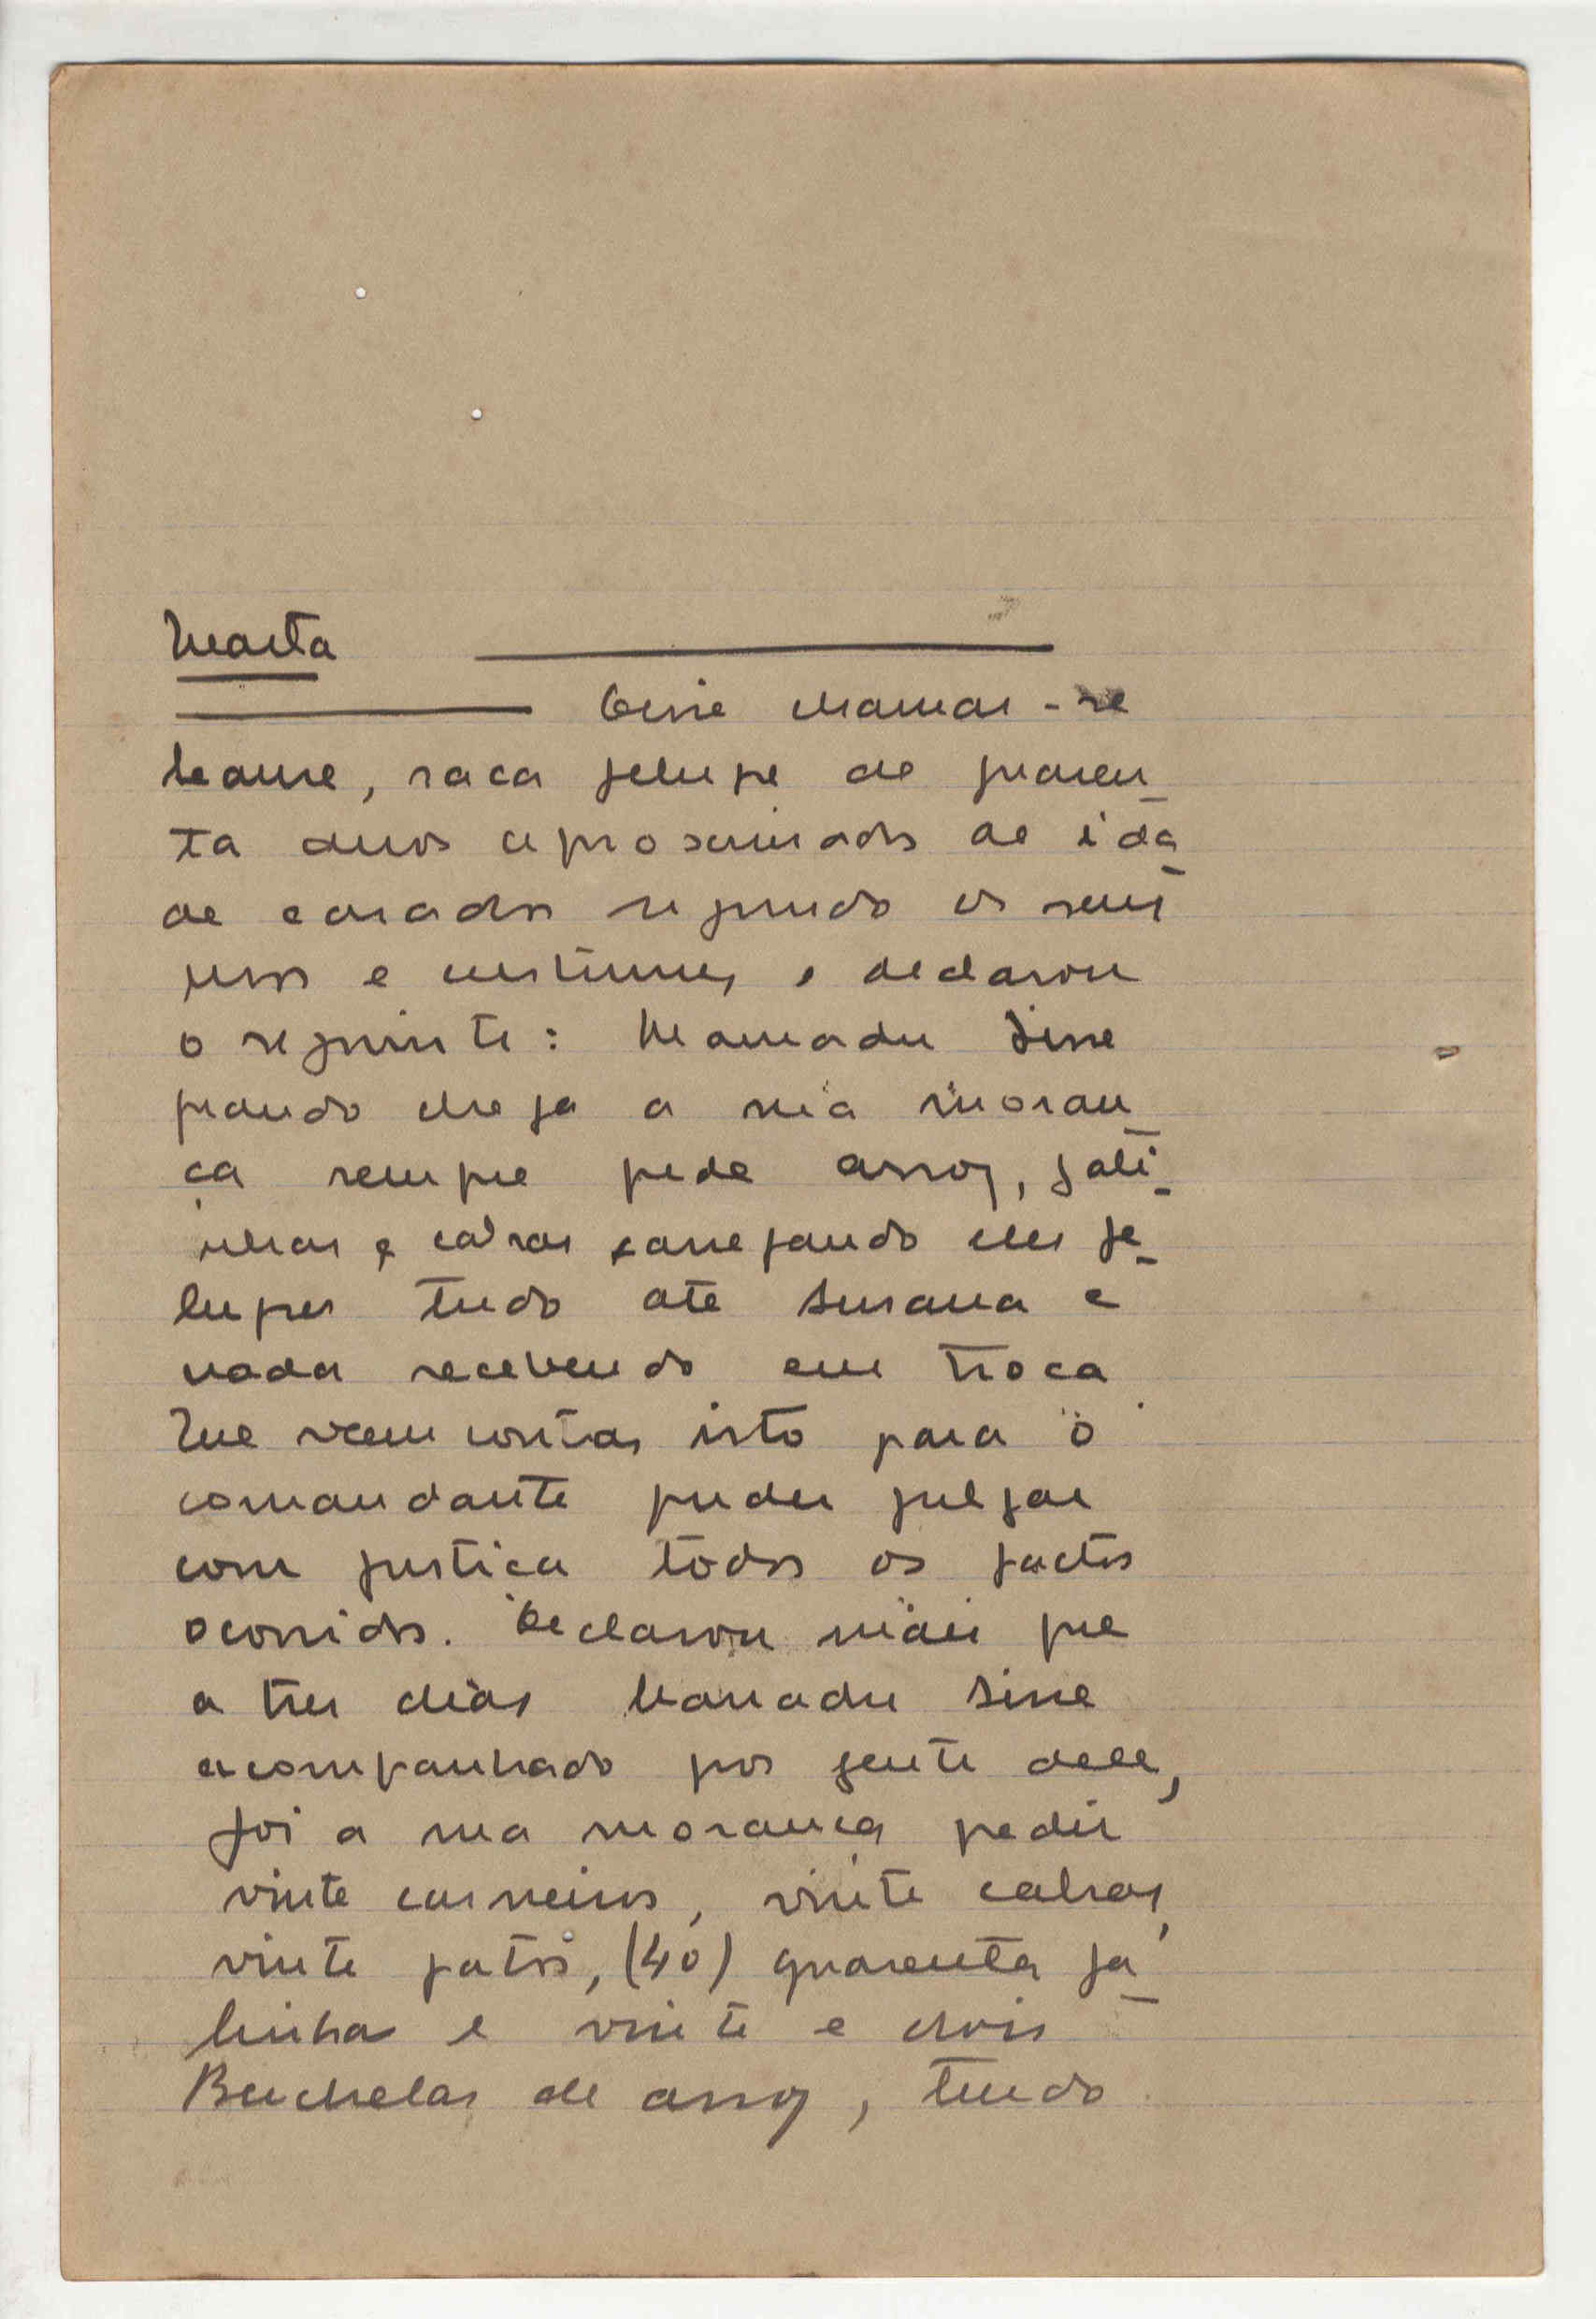 Disse chamar-se
raca felupe de quaren_
ta anos aproximados de ida_
de casados segundo os seus
usos e custumes, declarou
o seguinte: Mamadu Sine
quando chega a sua moran_
ça sempre pede arroz, gali_
nhas e cabras carregando eles fe_
lupes tudo até Susana e
nada recebendo em troca.
Que vem contar isto para o
comandante puder julgar
com justiça todos os factos
ocorridos. Declarou mais que
a tres dias Mamadu Sine
acompanhado por gente dele,
foi a sua morança pedir
vinte carneiros, vinte cabras,
vinte patos, (40) quarenta ga_
linha e vinte e dois
de arroz, tudo